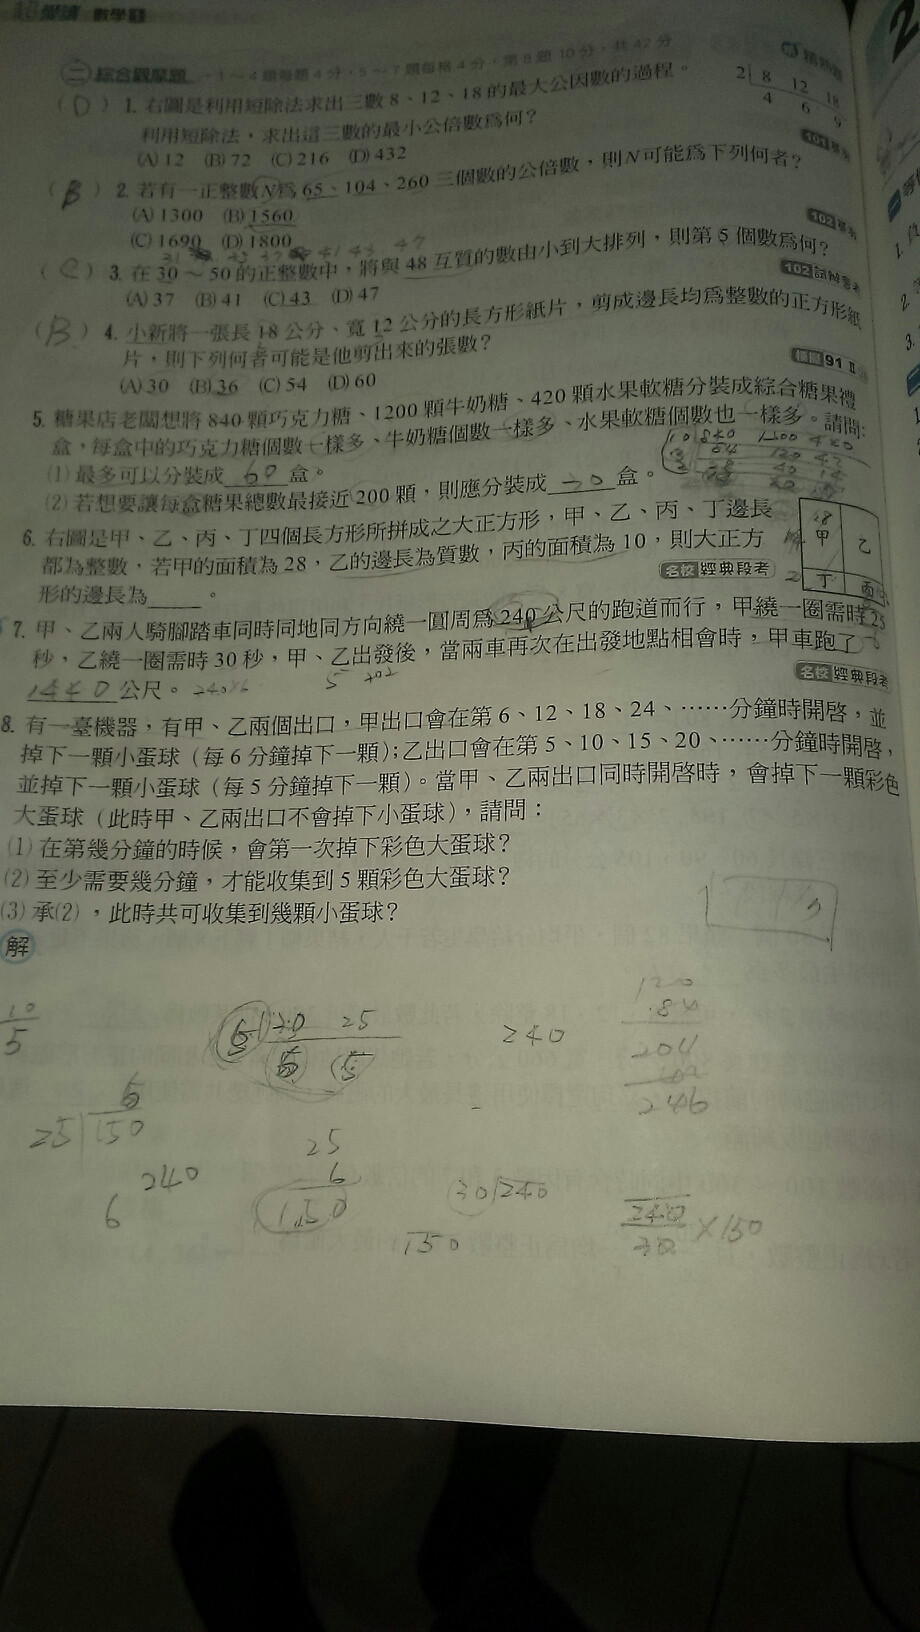 數學1
二 綜合觀摩題 1～4題每題4分，5～7題每格4分，第8題10分，共42分
(D) 1. 右圖是利用短除法求出三數8、12、18的最大公因數的過程。
2 8 12 18
4 6 9
利用短除法，求出這三數的最小公倍數爲何？
(A) 12 (B) 72 (C) 216 (D) 432
(B) 2. 若有一正整數N爲65、104、260三個數的公倍數，則N可能爲下列何者？
(A) 1300 (B) 1560
(C) 1690 (D) 1800
31 41 43 47
(C) 3. 在30～50的正整數中，將與48互質的數由小到大排列，則第5個數爲何？
(A) 37 (B) 41 (C) 43 (D) 47
102試辦會考
(B) 4. 小新將一張長18公分、寬12公分的長方形紙片，剪成邊長均爲整數的正方形紙
片，則下列何者可能是他剪出來的張數？
(A) 30 (B) 36 (C) 54 (D) 60
91 II
5. 糖果店老闆想將840顆巧克力糖、1200顆牛奶糖、420顆水果軟糖分裝成綜合糖果禮
盒，每盒中的巧克力糖個數一樣多、牛奶糖個數一樣多、水果軟糖個數也一樣多。請問：
(1) 最多可以分裝成 60 盒。
(2) 若想要讓每盒糖果總數最接近200顆，則應分裝成 盒。
6. 右圖是甲、乙、丙、丁四個長方形所拼成之大正方形，甲、乙、丙、丁邊長
都為整數，若甲的面積為28，乙的邊長為質數，丙的面積為10，則大正方
形的邊長為 。
名校 經典段考
甲 乙
丁 丙
7. 甲、乙兩人騎腳踏車同時同地同方向繞一圓周爲240公尺的跑道而行，甲繞一圈需時25
秒，乙繞一圈需時30秒，甲、乙出發後，當兩車再次在出發地點相會時，甲車跑了
1440 公尺。
名校 經典段考
8. 有一臺機器，有甲、乙兩個出口，甲出口會在第6、12、18、24、……分鐘時開啓，並
掉下一顆小蛋球（每6分鐘掉下一顆）；乙出口會在第5、10、15、20、……分鐘時開啓，
並掉下一顆小蛋球（每5分鐘掉下一顆）。當甲、乙兩出口同時開啓時，會掉下一顆彩色
大蛋球（此時甲、乙兩出口不會掉下小蛋球），請問：
(1) 在第幾分鐘的時候，會第一次掉下彩色大蛋球？
(2) 至少需要幾分鐘，才能收集到5顆彩色大蛋球？
(3) 承(2)，此時共可收集到幾顆小蛋球？
解
10
5
25
240
120
84
204
246
6
25 150
25
6
150
240
6
30 240
150
240
30 ×150